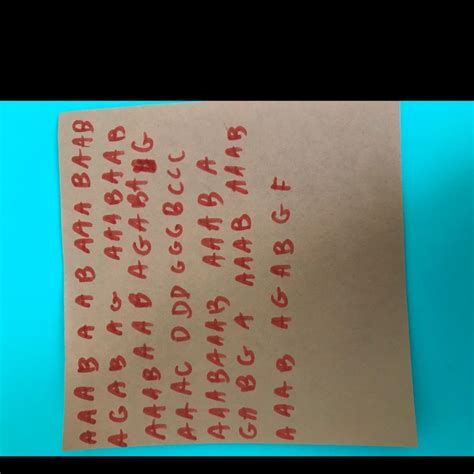 AAAB A AB AAA BAAB
AGAB AG AAABAAB
AAAB AAB AGABA G
AAAC DDD GGGBCCC
AAABAAAB AAAB A
GABGA AAAB AAAB
AAAB AGABGF